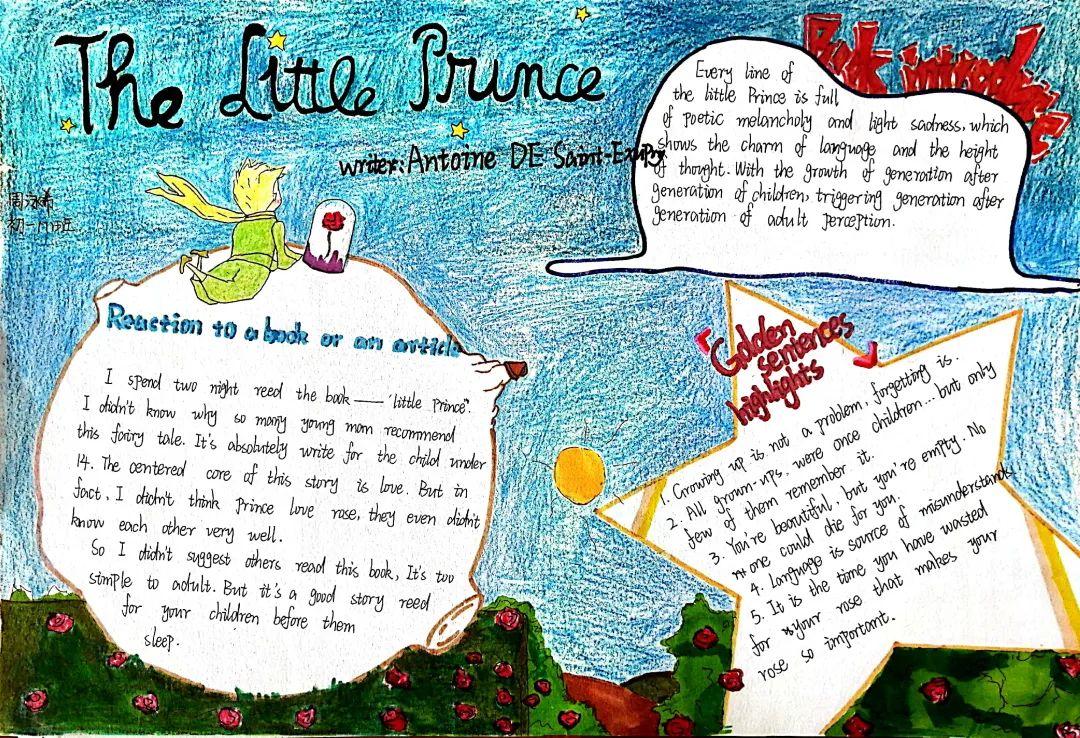 The Little Prince
writer: Antoine DE Saint-Exupry
Book introduce
Every line of
the little Prince is full
of poetic melancholy and light sadness, which
shows the charm of language and the height
of thought. With the growth of generation after
generation of children, triggering generation after
generation of adult perception.
初一
Reaction to a book or an article
I spend two night reed the book——"little Prince".
I didn't know why so many young mom recommend
this fairy tale. It's absolutely write for the child under
14. The centered core of this story is love. But in
fact, I didn't think Prince love rose, they even didn't
know each other very well.
So I didn't suggest others read this book, It's too
simple to adult. But it's a good story reed
for your children before them
sleep.
Golden
sentences
highlights
1. Growing up is not a problem, forgetting is.
2. All grown-ups were once children... but only
few of them remember it.
3. You're beautiful, but you're empty. No
one could die for you.
4. Language is source of misunderstands
5. It is the time you have wasted
for your rose that makes your
rose so important.